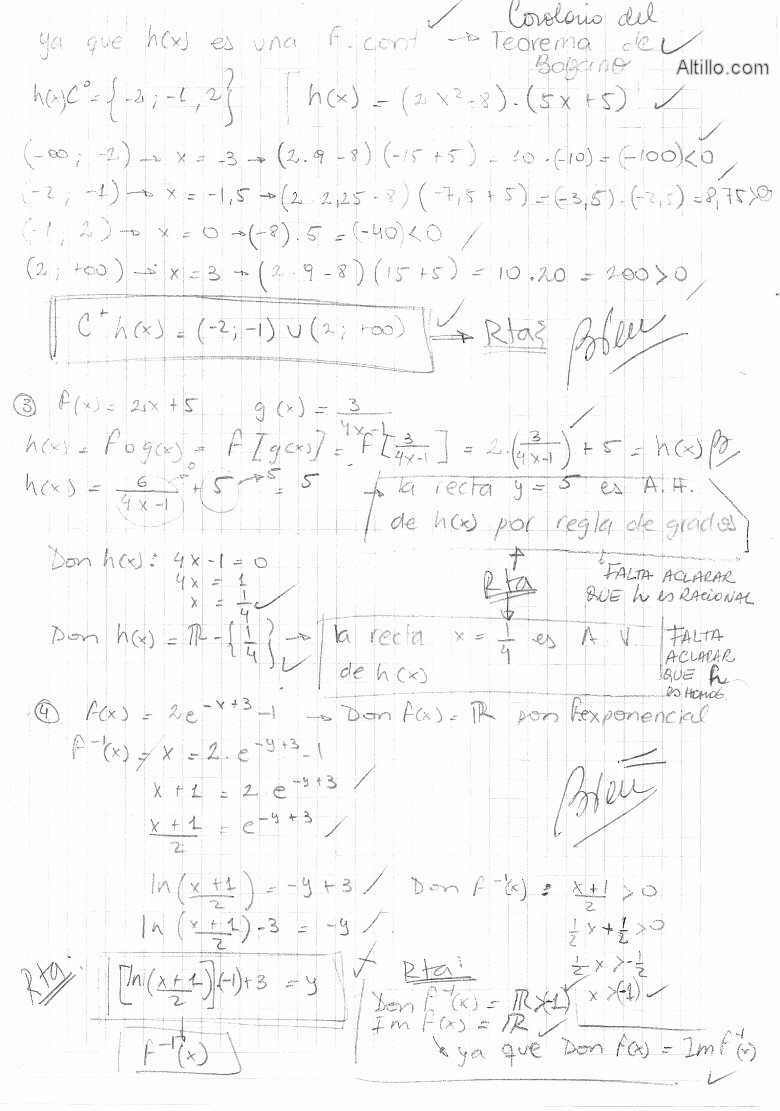 Corolario del
ya que h(x) es una F. cont → Teorema de
Bolzano
Altillo.com
h(x) C⁰ = {-2; -1, 2} h(x) = (2x² - 8) · (5x + 5)
(-∞; -2) → x = -3 → (2·9 - 8) (-15 + 5) = 10·(-10) = (-100) < 0
(-2; -1) → x = -1,5 → (2·2,25 - 8) (-7,5 + 5) = (-3,5)·(-2,5) = 8,75 > 0
(-1, 2) → x = 0 → (-8)·5 = (-40) < 0
(2; +∞) → x = 3 → (2·9 - 8) (15 + 5) = 10·20 = 200 > 0
C⁺ h(x) = (-2; -1) ∪ (2; +∞) ⇒ Rta
Bien
③ f(x) = 2x + 5 g(x) = 3/(4x-1)
h(x) = f o g(x) = f [g(x)] = f [3/(4x-1)] = 2·(3/(4x-1)) + 5 = h(x) B
h(x) = 6/(4x-1) →0 + 5 →5 = 5 → la recta y = 5 es A.H.
de h(x) por regla de grados
Dom h(x): 4x - 1 = 0
4x = 1
x = 1/4
Rta
FALTA ACLARAR
QUE h ES RACIONAL
Dom h(x) = ℝ - {1/4} → la recta x = 1/4 es A V
de h(x)
FALTA
ACLARAR
QUE h
ES HOMOG.
④ f(x) = 2e^(-x+3) - 1 → Dom f(x) = ℝ por f. exponencial
f⁻¹(x) = x = 2·e^(-y+3) - 1
x + 1 = 2 e^(-y+3)
(x+1)/2 = e^(-y+3)
Bien
ln((x+1)/2) = -y + 3 Dom f⁻¹(x): (x+1)/2 > 0
ln((x+1)/2) - 3 = -y 1/2 x + 1/2 > 0
1/2 x > -1/2
x > (-1)
Rta: [ln((x+1)/2)]·(-1) + 3 = y
f⁻¹(x)
Rta:
Dom f⁻¹(x) = ℝ > (-1)
Im f(x) = ℝ
ya que Dom f(x) = Im f⁻¹(x)